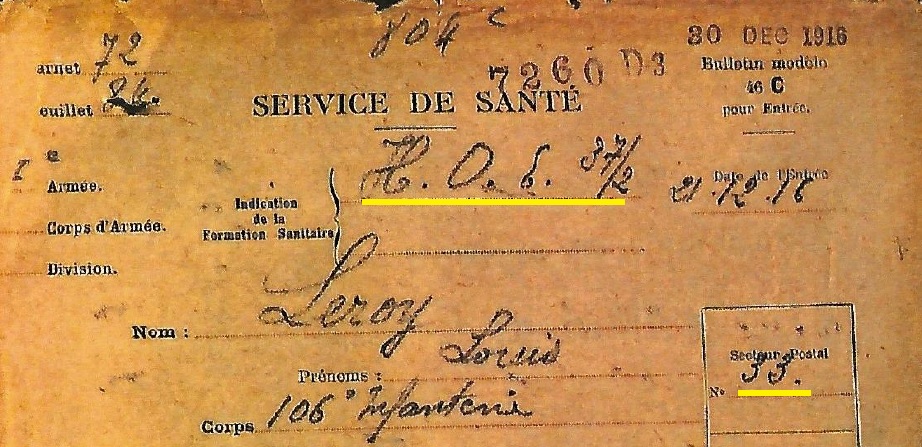 804 c
30 DEC 1916
arnet 72
7260 D3
Bulletin modèle
46 C
pour Entrée.
euillet 24.
SERVICE DE SANTÉ
I e
Armée.
H. O. E. 37/2
Date de l'Entrée
21.12.16
Indication
de la
Formation Sanitaire
Corps d'Armée.
Division.
Nom : Leroy
Prénoms : Louis
Secteur Postal
N° 33.
Corps 106e Infanterie